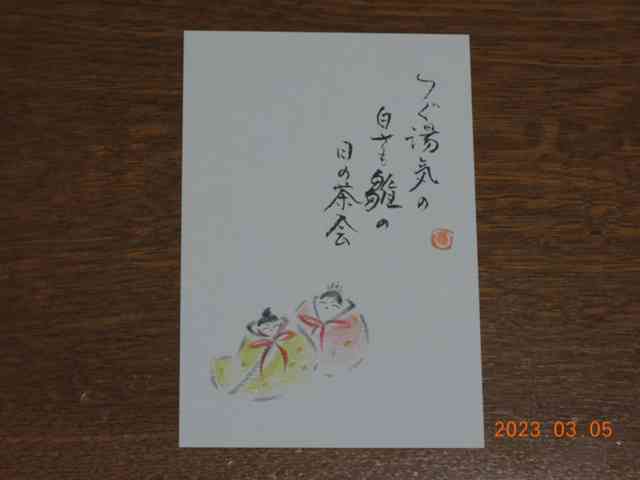 つぐ湯気の
白さも雛の
日の茶会
2023 03 05